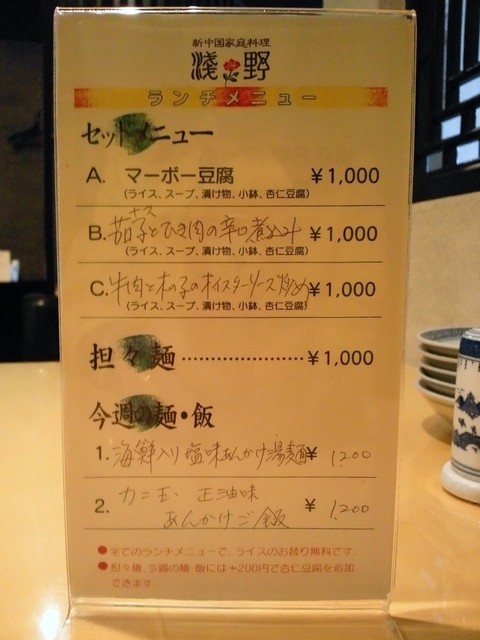 新中国家庭料理
浅野
ランチメニュー
セットメニュー
A. マーボー豆腐 ¥1,000
(ライス、スープ、漬け物、小鉢、杏仁豆腐)
B. 茄子とひき肉の辛口煮込み ¥1,000
ナス
(ライス、スープ、漬け物、小鉢、杏仁豆腐)
C. 牛肉と木の子のオイスターソース炒め ¥1,000
(ライス、スープ、漬け物、小鉢、杏仁豆腐)
担々麺……………………¥1,000
今週の麺・飯
1. 海鮮入り塩味あんかけ湯麺 ¥ 1,200
2. カニ玉 正油味
あんかけご飯 ¥ 1,200
●全てのランチメニューで、ライスのお替り無料です。
●担々麺、今週の麺・飯には+200円で杏仁豆腐を追加
できます。